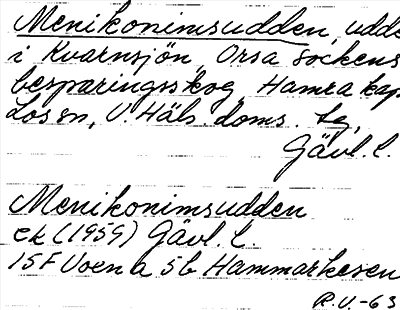 Menikonimsudden, udde
i Kvarnsjön, Orsa sockens
besparingsskog Hamra kap
Los sn, V. Häls. doms. tg,
Gävl. l.
Menikonimsudden
ek (1959) Gävl. l.
15F Voxna 5b Hammarkesen
R.V.-63